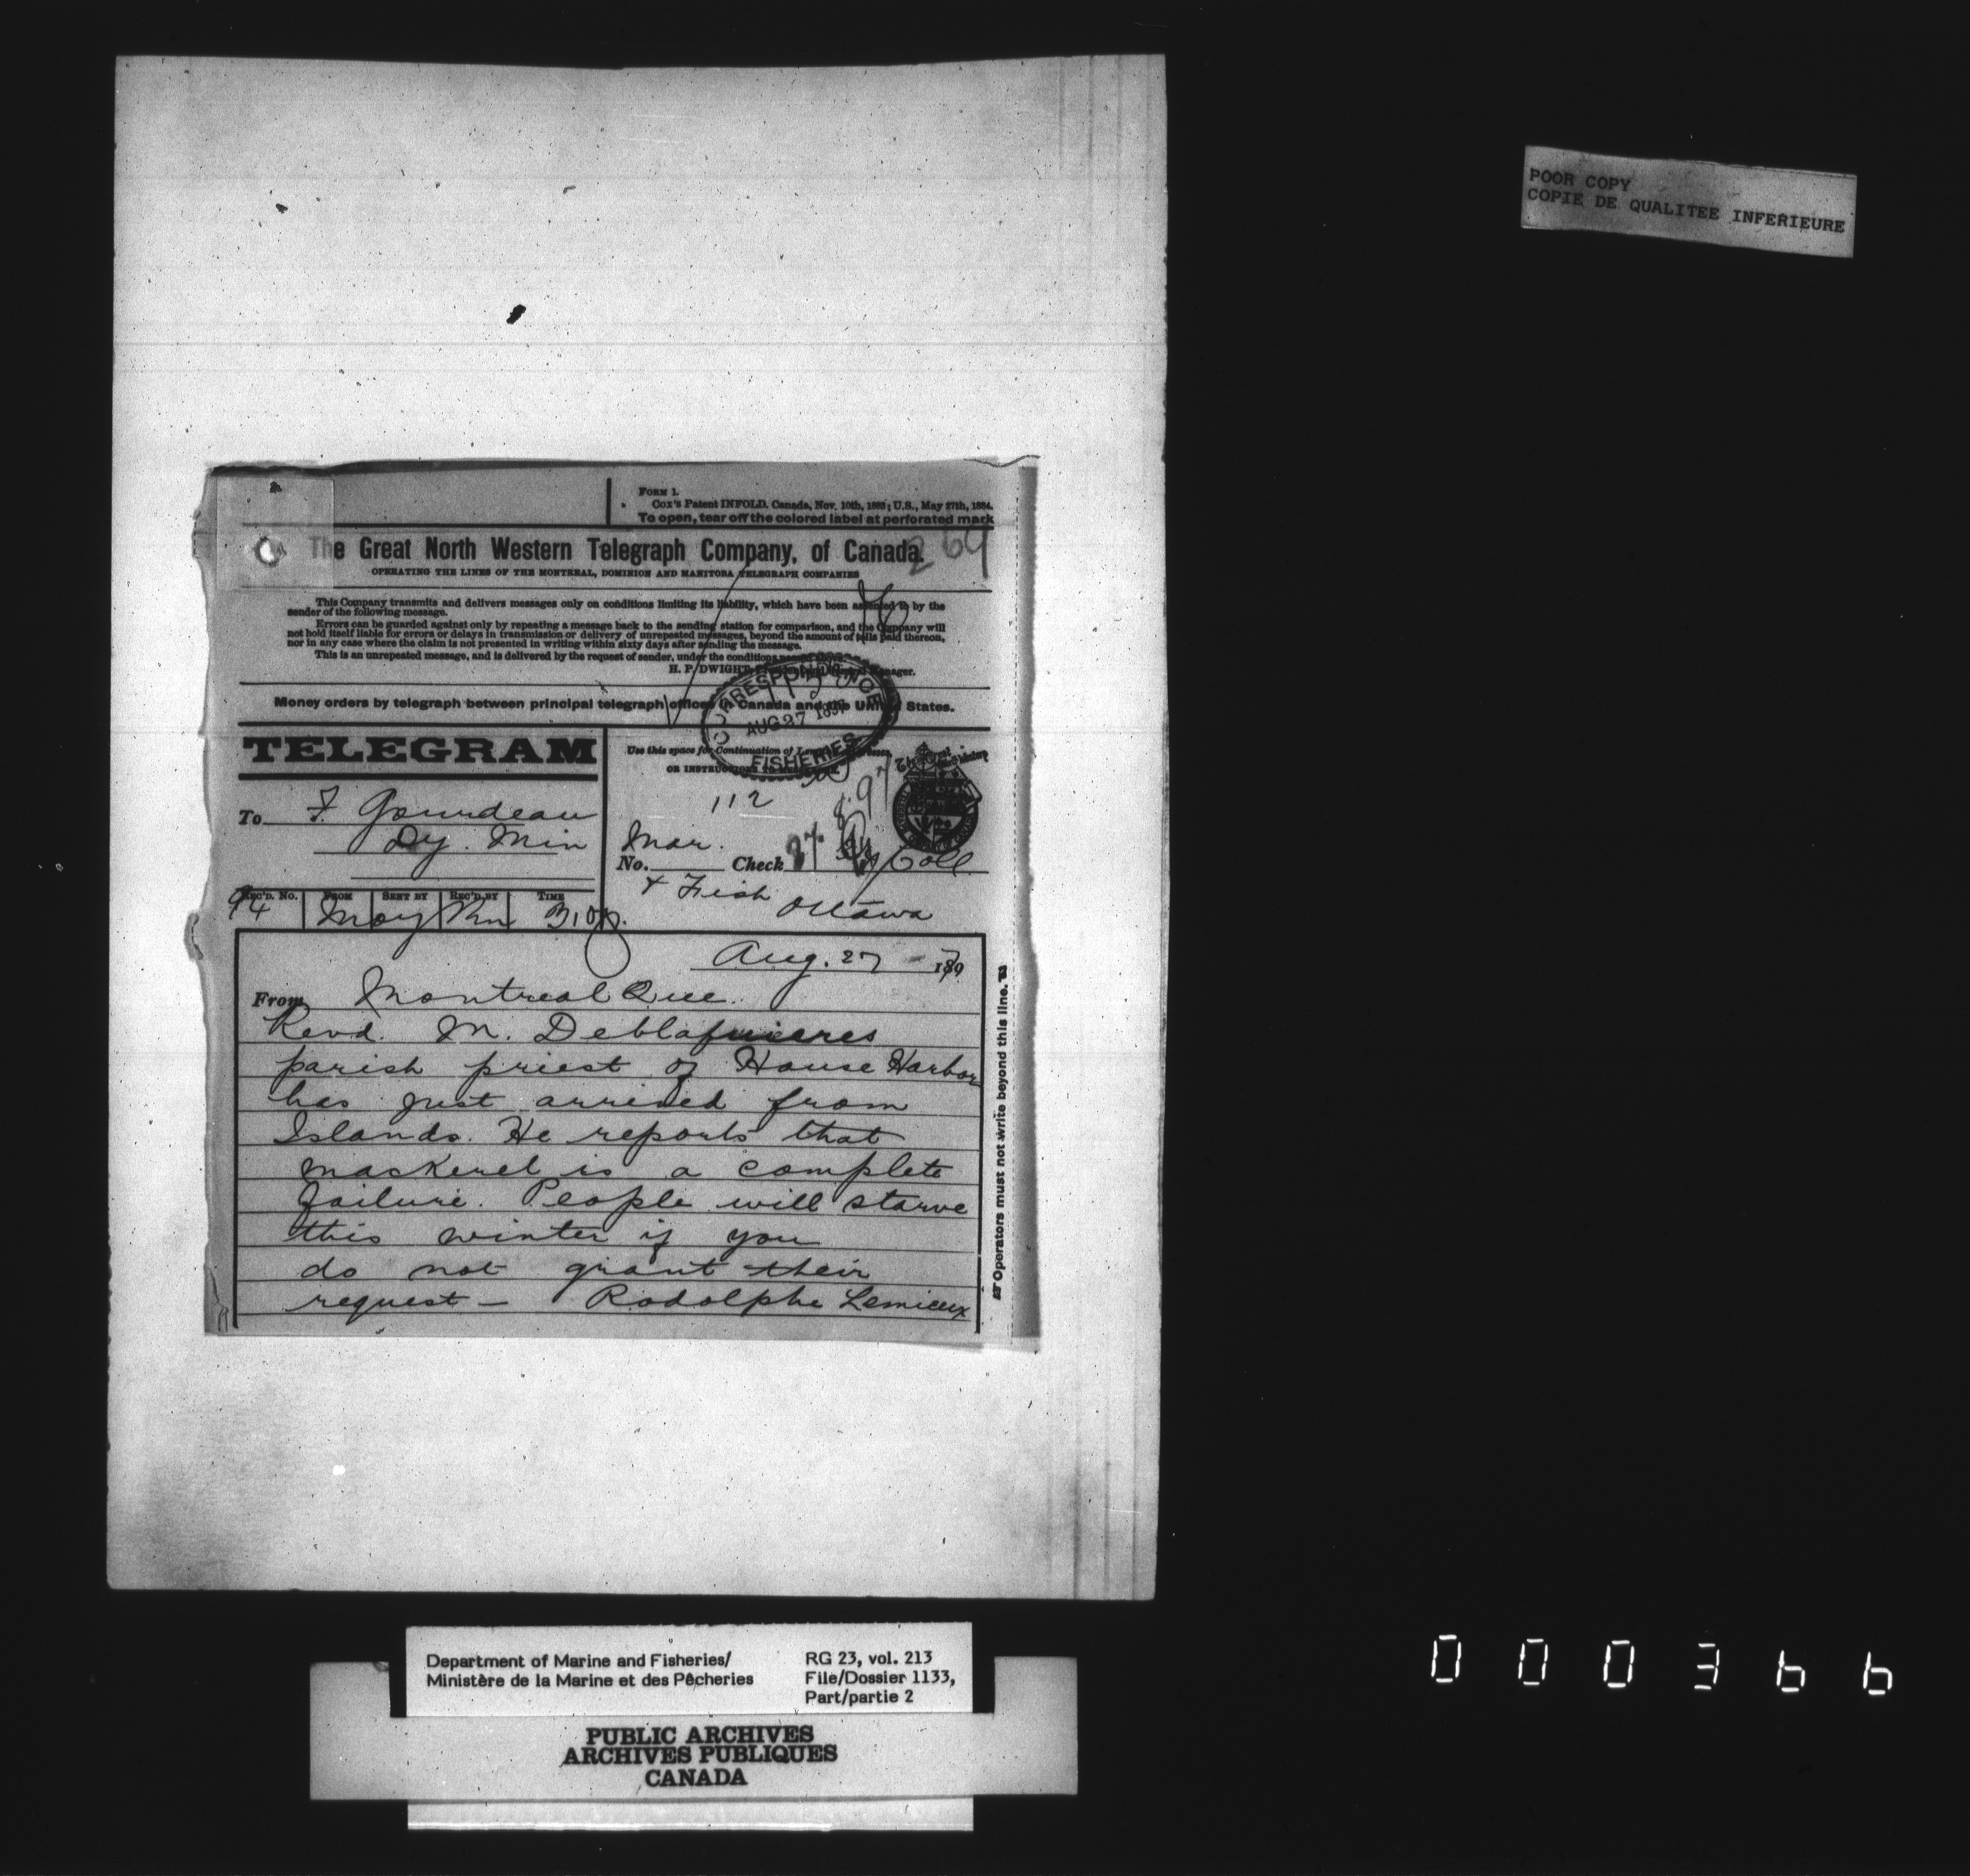 POOR COPY
COPIE DE QUALITEE INFERIEURE
FORM 1.
Cox's Patent INFOLD. Canada, Nov. 10th, 1883; U.S., May 27th, 1884.
To open, tear off the colored label at perforated mark
The Great North Western Telegraph Company, of Canada.
269
OPERATING THE LINES OF THE MONTREAL, DOMINION AND MANITOBA TELEGRAPH COMPANIES
This Company transmits and delivers messages only on conditions limiting its liability, which have been assented to by the
sender of the following message.
Errors can be guarded against only by repeating a message back to the sending station for comparison, and the Company will
not hold itself liable for errors or delays in transmission or delivery of unrepeated messages, beyond the amount of tolls paid thereon,
nor in any case where the claim is not presented in writing within sixty days after sending the message.
This is an unrepeated message, and is delivered by the request of sender, under the conditions
H. P. DWIGHT, Manager.
Money orders by telegraph between principal telegraph offices in Canada and the United States.
CORRESPONDENCE
AUG 27 1897
FISHERIES
TELEGRAM
Use this space for Continuation of
OR INSTRUCTIONS TO
112
8.97
To F. Gourdeau
Dy. Min
Mar.
No. Check 27 Coll
& Fish Ottawa
REC'D. No. FROM SENT BY REC'D BY TIME
94 Moy Rn 3.10p.
Aug. 27 1897
From Montreal Que.
Revd. M.
parish priest of House Harbor
has just arrived from
Islands. He reports that
mackerel is a complete
failure. People will starve
this winter if you
do not grant their
request — Rodolphe Lemieux
Operators must not write beyond this line.
Department of Marine and Fisheries/
Ministère de la Marine et des Pêcheries
RG 23, vol. 213
File/Dossier 1133,
Part/partie 2
PUBLIC ARCHIVES
ARCHIVES PUBLIQUES
CANADA
000366